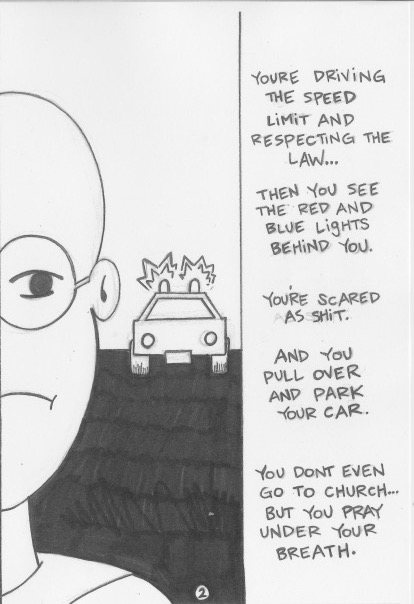 YOURE DRIVING
THE SPEED
LIMIT AND
RESPECTING THE
LAW...
THEN YOU SEE
THE RED AND
BLUE LIGHTS
BEHIND YOU.
YOU'RE SCARED
AS SHIT.
AND YOU
PULL OVER
AND PARK
YOUR CAR.
YOU DONT EVEN
GO TO CHURCH...
BUT YOU PRAY
UNDER YOUR
BREATH.
2